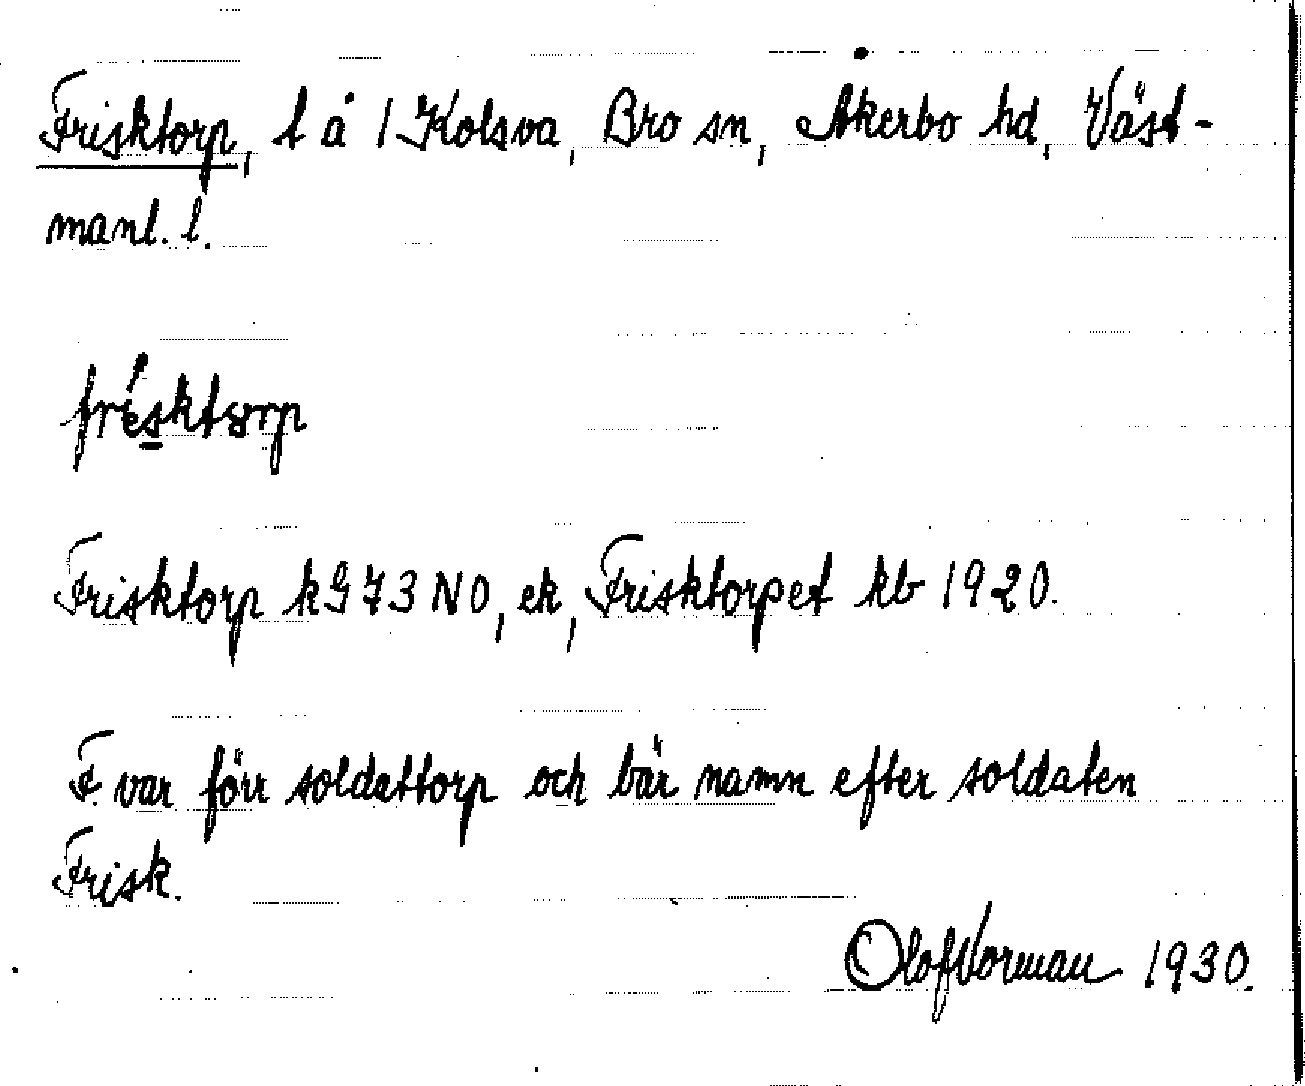 Frisktorp, t å 1 Kolsva, Bro sn, Åkerbo hd, Väst-
manl. l.
frésktorp
Frisktorp kG 73 NO, ek, Frisktorpet kb 1920.
F. var förr soldattorp och bär namn efter soldaten
Frisk.
Olof Vorman 1930.